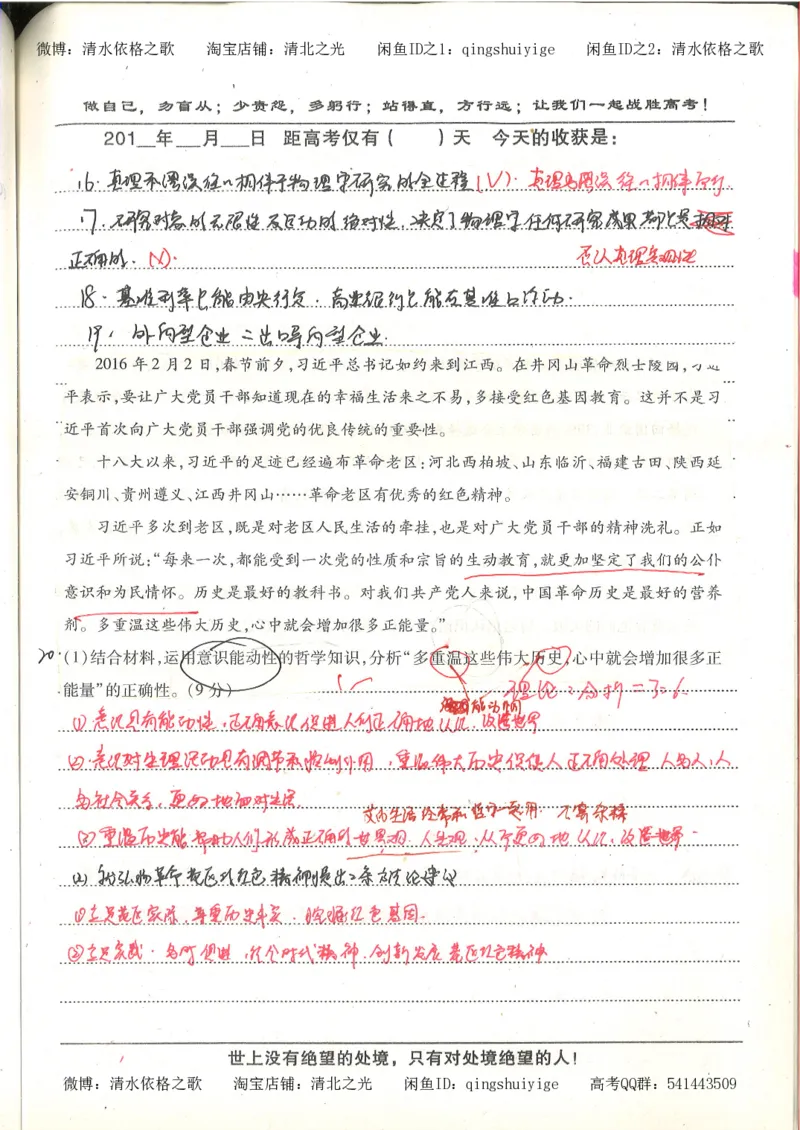 微博：清水依格之歌 淘宝店铺：清北之光 闲鱼ID之1：qingshuiyige 闲鱼ID之2：清水依格之歌
做自己，勿盲从；少责怨，多躬行；站得直，方行远；让我们一起战胜高考！
201__年___月___日 距高考仅有（ ）天 今天的收获是：
16. 真理和谬误往往相伴于物理学研究的全过程(√). 真理与谬误往往相伴而行
17. 研究对象的无限性及运动的绝对性，决定了物理学任何研究成果都是相对
正确的. (×). 否认真理客观性
18. 基准利率只能由央行定. 商业银行只能在基准上浮动.
19. 外向型企业 = 出口导向型企业.
2016年2月2日，春节前夕，习近平总书记如约来到江西。在井冈山革命烈士陵园，习近
平表示，要让广大党员干部知道现在的幸福生活来之不易，多接受红色基因教育。这并不是习
近平首次向广大党员干部强调党的优良传统的重要性。
十八大以来，习近平的足迹已经遍布革命老区：河北西柏坡、山东临沂、福建古田、陕西延
安铜川、贵州遵义、江西井冈山……革命老区有优秀的红色精神。
习近平多次到老区，既是对老区人民生活的牵挂，也是对广大党员干部的精神洗礼。正如
习近平所说：“每来一次，都能受到一次党的性质和宗旨的生动教育，就更加坚定了我们的公仆
意识和为民情怀。历史是最好的教科书。对我们共产党人来说，中国革命历史是最好的营养
剂。多重温这些伟大历史，心中就会增加很多正能量。”
20. (1)结合材料，运用意识能动性的哲学知识，分析“多重温这些伟大历史，心中就会增加很多正
能量”的正确性。(9分)
理论：分析=3:6
①意识具有能动性，正确意识促进人们正确地认识、改造世界
②意识对生理活动具有调节和控制作用，重温伟大历史促使人正确处理人与人，人
与社会关系，更好地面对生活.
文化生活经常和哲学一起用.
③重温历史能帮助人们形成正确的世界观、人生观，从而更好地认识、改造世界.
(2) 就弘扬革命老区红色精神提出2条方法论建议
①立足老区实际，尊重历史事实，挖掘红色基因.
②立足实践，与时俱进，结合时代精神，创新发展老区红色精神
世上没有绝望的处境，只有对处境绝望的人！
微博：清水依格之歌 淘宝店铺：清北之光 闲鱼ID：qingshuiyige 高考QQ群：541443509